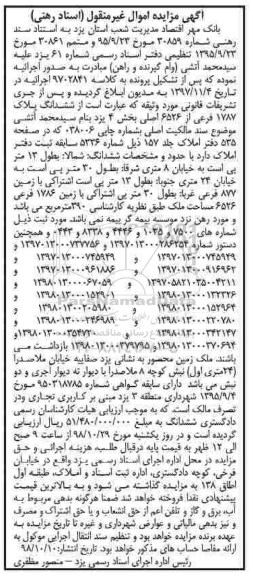 آگهی مزایده اموال غیرمنقول (اسناد رهنی)
بانک مهر اقتصاد مدیریت شعب استان یزد به استناد سند
رهنی شماره ۳۰۸۵۹ مورخ ۹۵/۹/۲۳ و متمم ۳۰۸۶۱ مورخ
۱۳۹۵/۹/۲۳ تنظیمی دفتر اسناد رسمی شماره ۶۱ یزد علیه
سیدمحمد آتشی (وام گیرنده و راهن) مبادرت به صدور اجرائیه
نموده که پس از تشکیل پرونده به کلاسه ۹۷۰۲۸۴۱ اجرائیه در
تاریخ ۱۳۹۷/۱۱/۴ به مدیون ابلاغ گردیده و پس از جری
تشریفات قانونی مورد وثیقه که عبارت است از ششدانگ پلاک
۱۷۸۷ فرعی از ۶۵۲۶ اصلی بخش ۴ یزد بنام سیدمحمد آتشی
موضوع سند مالکیت اصلی بشماره چاپی ۰۳۸۰۰۶ که در صفحه
۵۳۵ دفتر املاک جلد ۱۵۷ ذیل شماره ۵۳۳۶ سابقه ثبت دفتر
املاک دارد با حدود و مشخصات ششدانگ: شمالا: بطول ۱۳ متر
پی است به خیابان ۸ متری شرقا: بطول ۳۰ متر پی است به
خیابان ۲۴ متری جنوبا: بطول ۱۳ متر پی است اشتراکی با زمین
۸۷۷ فرعی غربا: بطول ۳۰ متر پی اشتراکی با زمین ۱۷۸۶ فرعی
۶۵۲۶ مساحت ملک طبق نظریه کارشناسی ۳۹۰ مترمربع می باشد
و مورد رهن نزد موسسه بیمه گر بیمه نمی باشد. مورد ثبت ذیل
شماره های ۷۵۰۰ و ۱۰۳۵ و ۴۴۴۶ و ۸۳۲۸ و ۰۴۴۳ و همچنین
باشند. ملک زمین محصور به نشانی یزد صفاییه خیابان ملاصدرا
(۲۴متری اول) نبش کوچه ۸ ملاصدرا با دیوار ته دیوار آجری و دو
نبش می باشد دارای سابقه گواهی شماره ۹۵۰۳۱۸۷۸۵ مورخ
۱۳۹۵/۹/۴ شهرداری منطقه ۳ یزد مبنی بر کاربری تجاری ودر
تصرف مالک است. که به موجب ارزیابی هیات کارشناسان رسمی
دادگستری ششدانگ به مبلغ ۵۱/۴۸۰/۰۰۰/۰۰۰ ریال ارزیابی
گردیده است و در روز یکشنبه مورخ ۹۸/۱۰/۲۹ از ساعت ۹ صبح
الی ۱۲ ظهر به قیمت پایه درقبال طلب، هزینه اجرائی و حق
مزایده در محل اداره اجرای اسناد رسمی یزد واقع در خیابان
فرخی، کوچه دادگستری، اداره ثبت اسناد و املاک، طبقه اول
اطاق ۱۳۸ به مزایده گذاشته می شود و به بالاترین قیمت
پیشنهادی نقدا فروخته خواهد شد ضمنا هرگونه بدهی مربوط به
آب، برق و گاز و تلفن اعم از حق انشعاب و یا حق اشتراک و مصرف
و نیز بدهی مالیاتی و عوارض شهرداری و غیره تا تاریخ مزایده به
عهده برنده مزایده خواهد بود و تنظیم سند انتقال اجرایی موکول به
ارائه مفاصا حساب های مذکور خواهد بود. تاریخ انتشار: ۹۸/۱۰/۱۰
رئیس اداره اجرای اسناد رسمی یزد – منصور مظفری